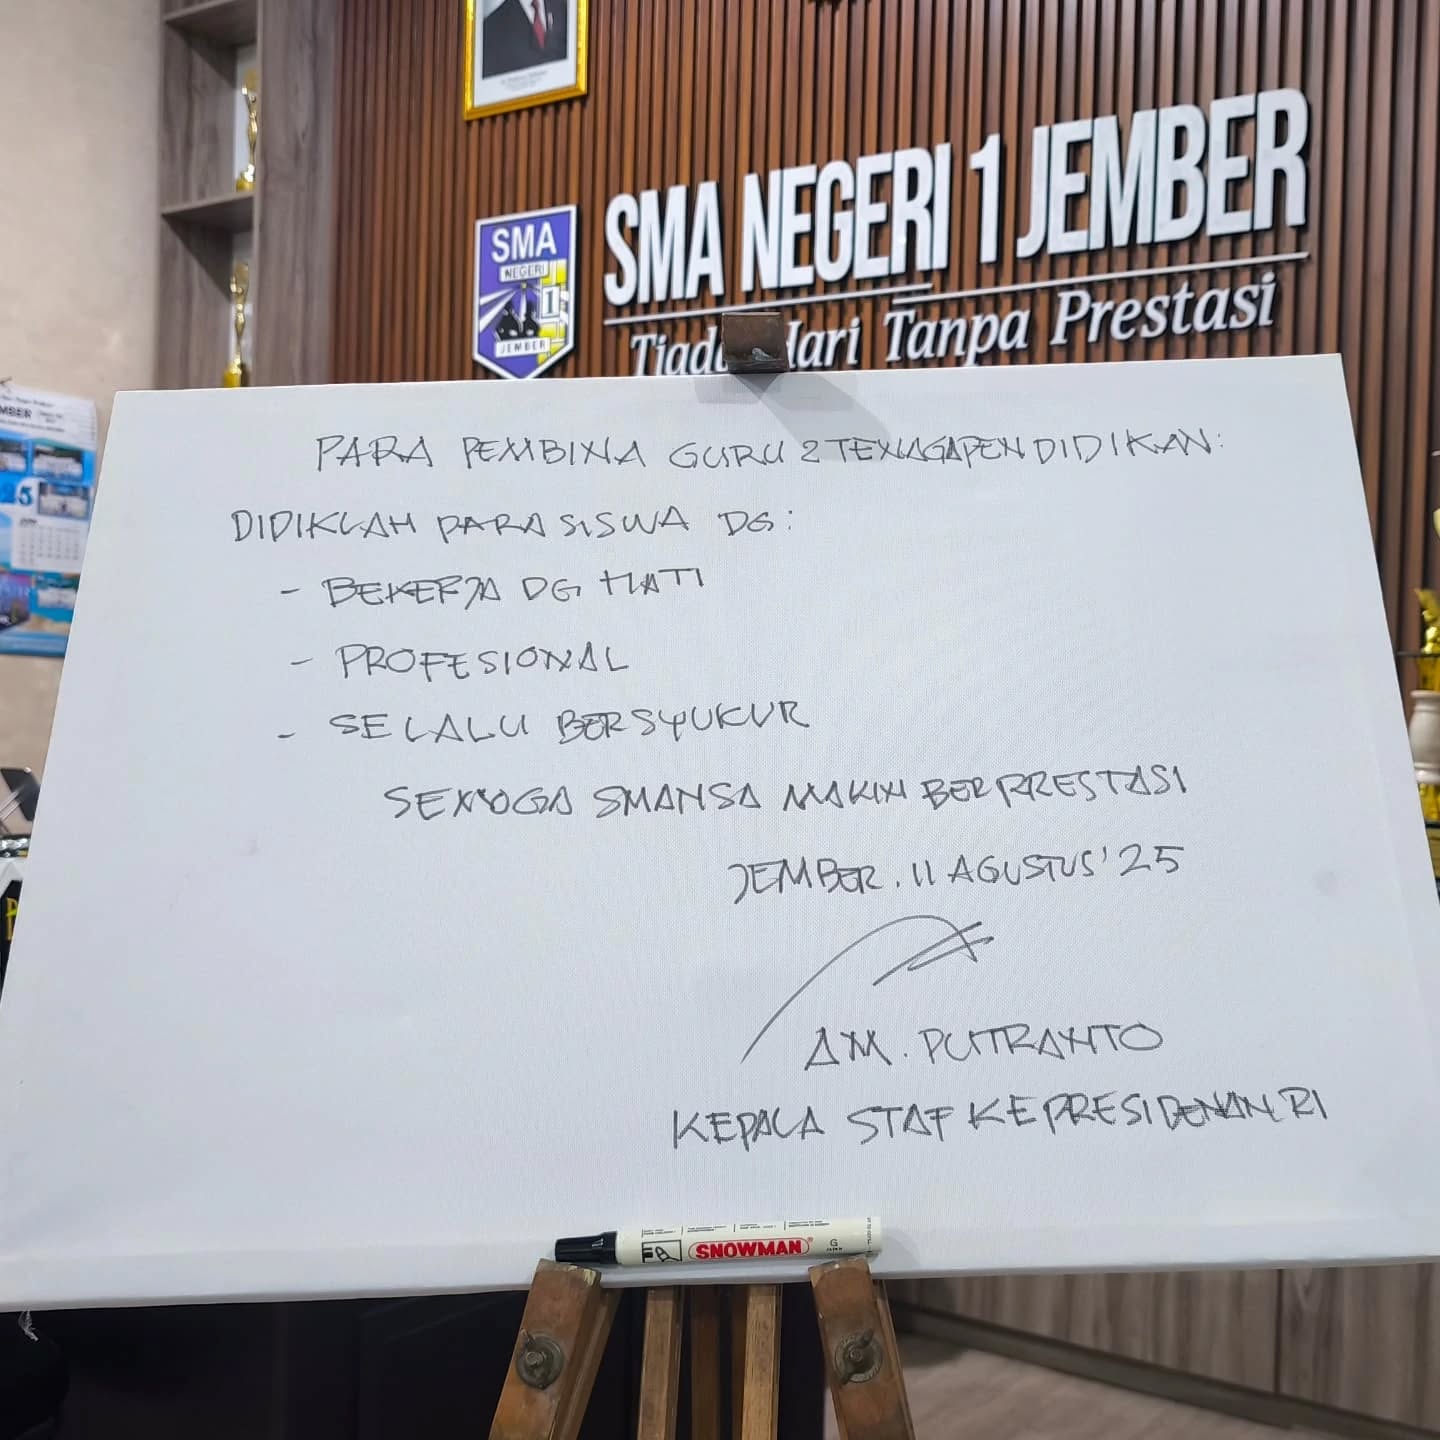 SMA NEGERI 1 JEMBER
Hari Tanpa Prestasi
SMA
NEGERI
1
JEMBER
PARA PEMBINA GURU 2 TENAGAPENDIDIKAN:
DIDIKLAH PARA SISWA DG:
- BEKERJA DG HATI
- PROFESIONAL
- SELALU BERSYUKUR
SEMOGA SMANSA MAKIN BERPRESTASI
JEMBER, 11 AGUSTUS'25
AM. PUTRANTO
KEPALA STAF KEPRESIDENAN RI
SNOWMAN
G